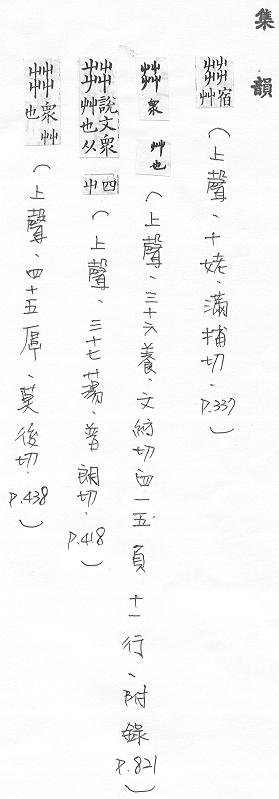 集韻
茻 宿草(上聲、十姥、滿補切、P.337)
茻 衆艸也(上聲、三十六養、文紡切四一五頁、十一行、附錄P.821)
茻 說文衆艸也从四屮(上聲、三十七蕩、普朗切、P.418)
茻 衆艸也(上聲、四十五厚、莫後切、P.438)